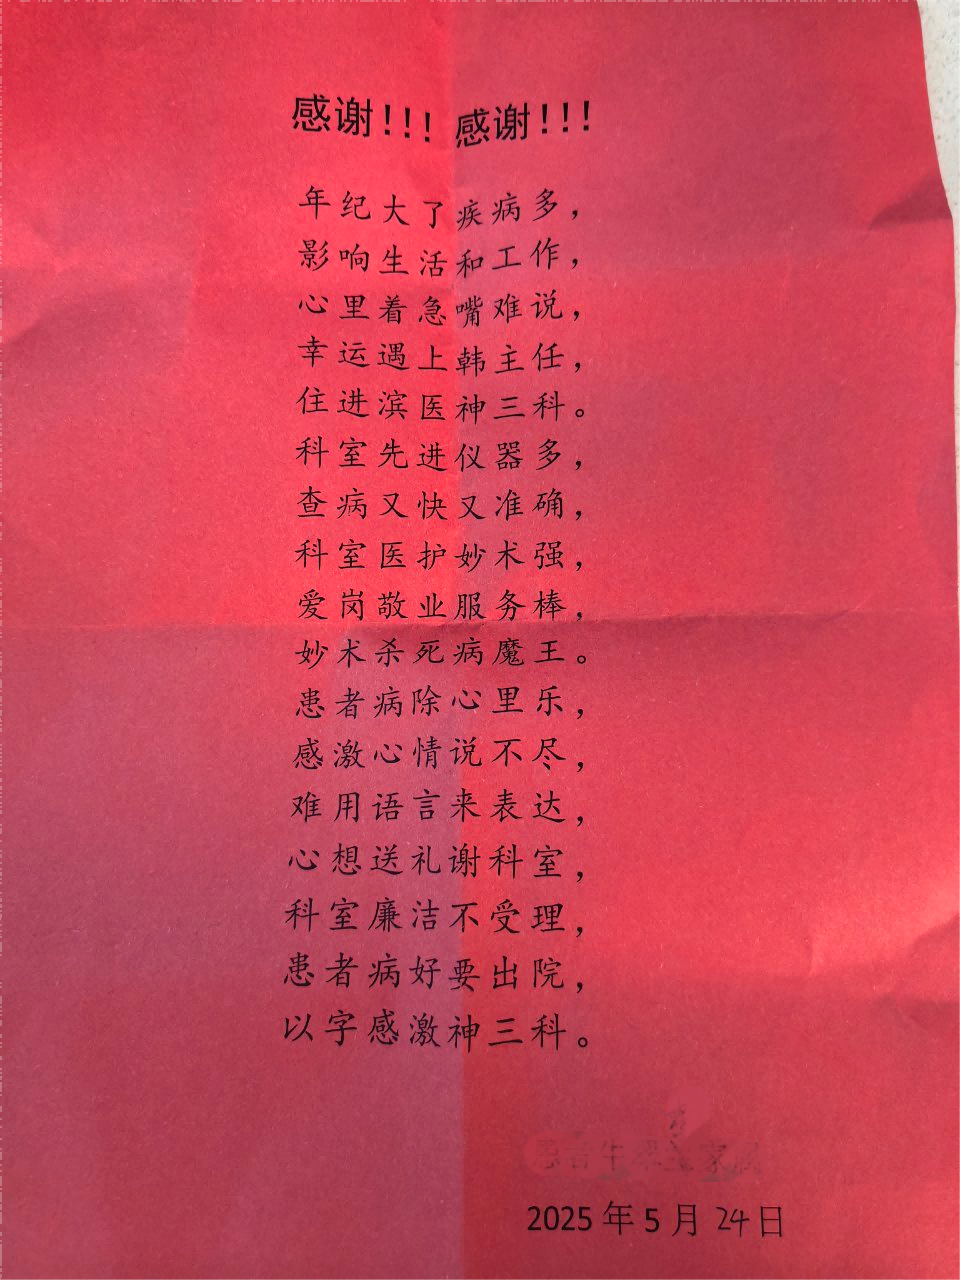 感谢!!! 感谢!!!
年纪大了疾病多，
影响生活和工作，
心里着急嘴难说，
幸运遇上韩主任，
住进滨医神三科。
科室先进仪器多，
查病又快又准确，
科室医护妙术强，
爱岗敬业服务棒，
妙术杀死病魔王。
患者病除心里乐，
感激心情说不尽，
难用语言来表达，
心想送礼谢科室，
科室廉洁不受理，
患者病好要出院，
以字感激神三科。
2025 年 5 月 24 日